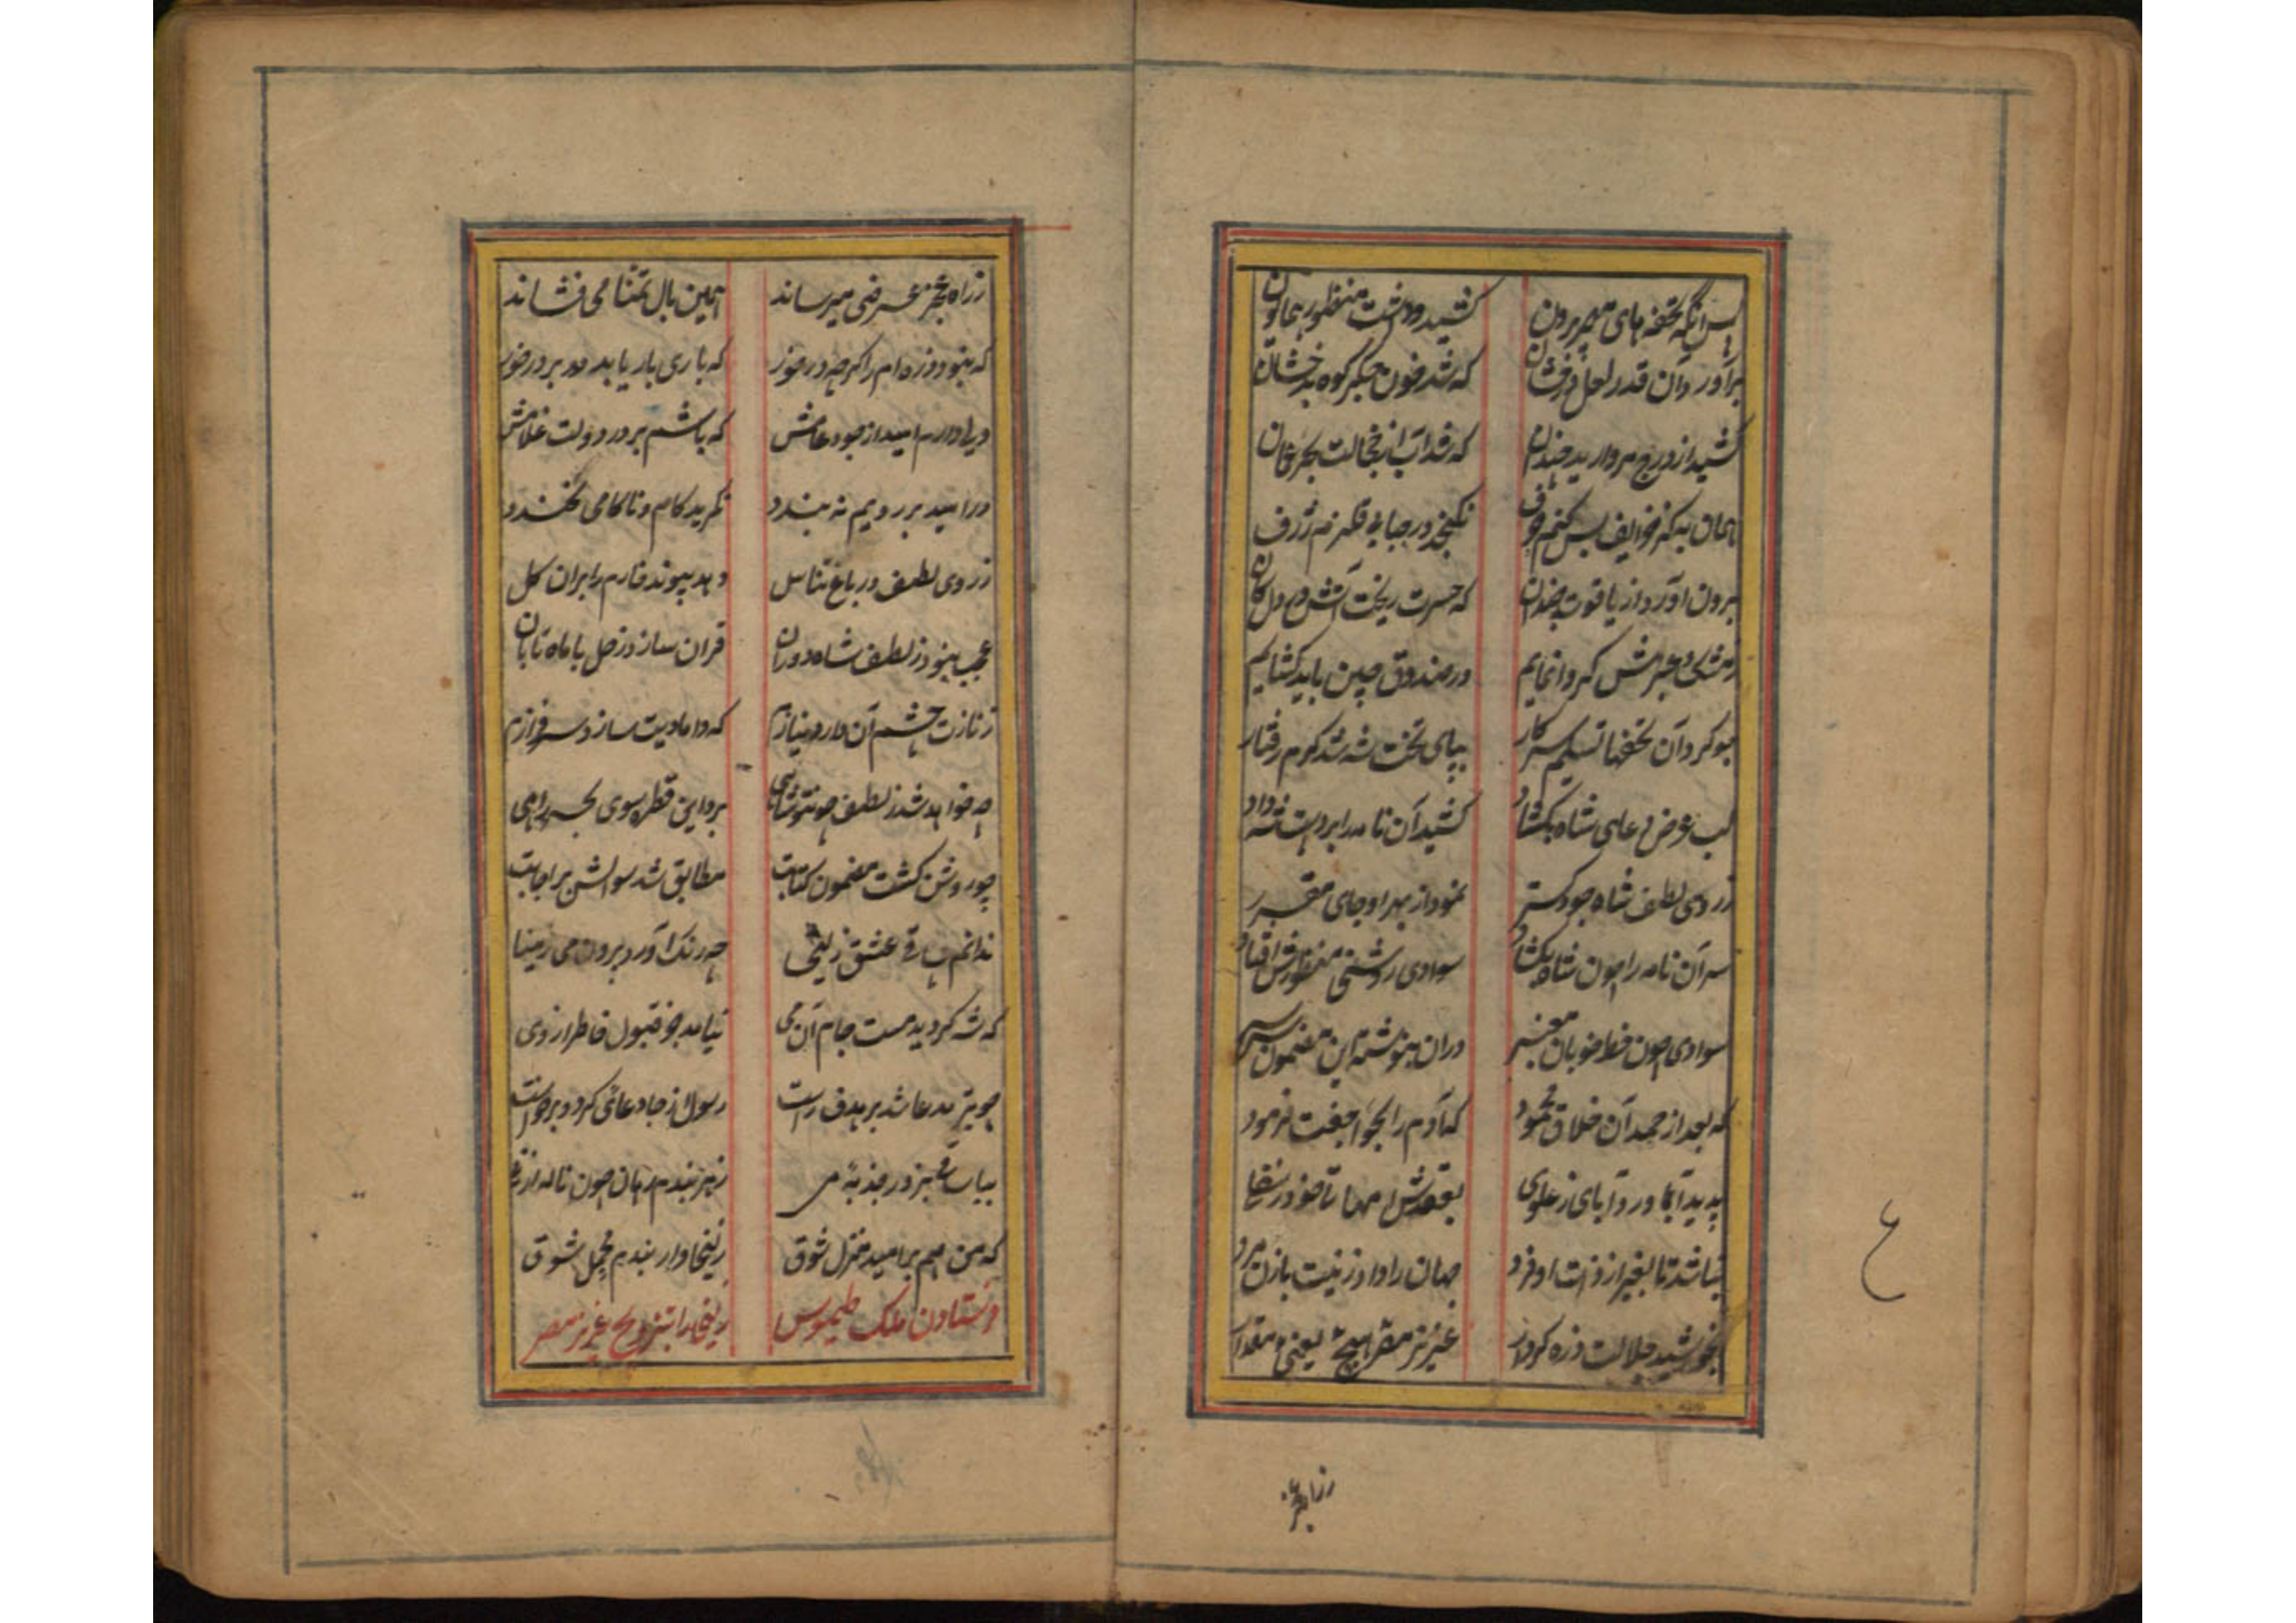 پس آنگه تحفه‌های مهر برون کشید و داشت منظور همایون
برآورد آن قدر لعل درخشان که شد خون جگر کوه بدخشان
کشید از درج مروارید چندان که شد آب از خجالت بحر عمان
همان به کز خزایف بس کنم حرف نگنجد در حبابی قلزم ژرف
برون آورد از یاقوت چندان که حسرت ریخت آتش در دل کان
ز مشک و عنبرش گر وانمایم در صندوق چین باید گشایم
چو کرد آن تحفها تسلیم سرکار بپای تخت شه شد گرم رفتار
لب عرض دعای شاه بگشاد کشید آن نامه را بر دست شه داد
ز روی لطف شاه جود گستر نمود از بهر او جای مقرر
سر آن نامه را چون شاه بگشاد سوادی روشنی منظورش افتاد
سوادی چون خط خوبان معنبر در آن بنوشته این مضمون سراسر
که بعد از حمد آن خلاق محمود که آدم را بحوا جفت فرمود
پدید آورد آبای ز علوی بعقدش امهات
نباشد تا بغیر از ذات او فرد جهان را داد زینت با زن و مرد
بخورشید جلالت ذره کردار عزیز مصر هیچ یعنی مقدار
ز راه عجز
ز راه عجز عرضی میرساند همین بال تمنا می‌فشاند
که نبود ذره‌ام را گرچه در خور که باری بار یابد بر در خور
ولی دارم امید از جود عامش که باشم بر در دولت غلامش
در امید بر رویم نه بندد نگرید کام و ناکامی نخندد
ز روی لطف در باغ تناسل دهد پیوند خارم را بران گل
عجب نبود ز لطف شاه دوران قران سازد زحل با ماه تابان
ز نازت چشم آن دارد نیازم که دامادیت سازد سرفرازم
چه خواهد شد ز لطف چون تو شاهی برد این قطره سوی بحر راهی
چو روشن گشت مضمون کتابت مطابق شد سوالش بر اجابت
ندانم ساقی عشق زلیخی چه رنگ آورد برون می ز مینا
که شه گردید مست جام آن می نیامد جز قبول خاطر از وی
چو تیر مدعا شد بر هدف راست رسول از جا دعائی کرد و برخواست
بیا ساقی بزور جذبهٔ می ز هر بندم رهان چون ناله از نی
که من هم بر امید منزل شوق زلیخاوار بندم محمل شوق
فرستادن ملک طیموس زلیخا را بتزویج عزیز مصر
ع